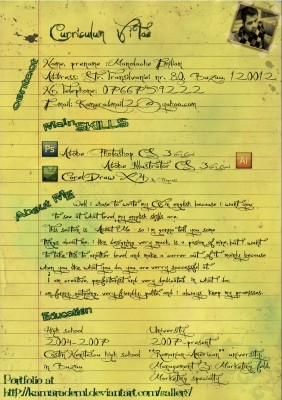 Curriculum Vitae
Contact
Name, prename : Manolache Emilian
Address: Str. Transilvaniei nr. 80, Buzau, 120012
No. Telephone: 0766759222
Email: Kamarademl2@yahoo.com
Main SKILLS
Ps Adobe Photoshop CS 3
Adobe Illustrator CS 3 Ai
Corel Draw X4
About Me
Well i chose to write my CV in english because i want you
to see at what level my english skills are.
This section is About Me so i'm gonna tell you some
things about me. I like designing very much, is a passion of mine, but i want
to take this to another level and make a carreer out of it mainly because
when you like what you do, you are verry successful it
I am creative, perfectionist and very dedicated in what i do
am funny, outgoing, very friendly, polite and i always keep my promisses.
Education
High school
2004-2007
Costin Nenitescu high school
in Buzau
University
2007-present
"Romanian-American" university
Management & Marketing field
Marketing specialty
Portfolio at
http://kamarademl.deviantart.com/gallery/